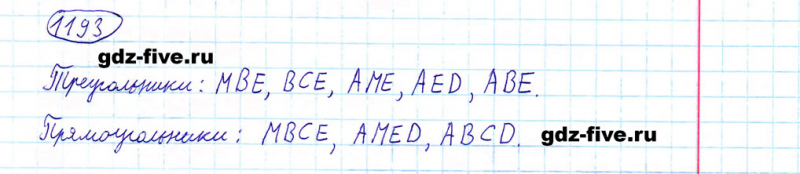 1193
gdz-five.ru
Треугольники: MBE, BCE, AME, AED, ABE.
Прямоугольники: MBCE, AMED, ABCD. gdz-five.ru